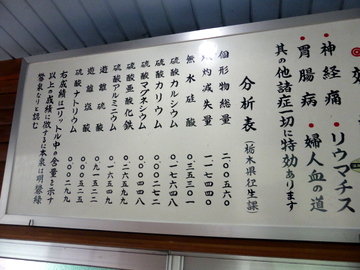 神経痛・リウマチス
胃腸病・婦人血の道
其の他諸症一切に特効あります
分析表（栃木県衛生課）
個形物総量 二〇〇五六〇
灼減失量 一一七四〇〇
無水硅酸 〇三五三〇一
硫酸カルシウム 〇一七六四八
硫酸カリウム 〇〇〇二八八
硫酸マグネシウム 〇〇四四八
硫酸亜酸化鉄 〇二六五七九
硫酸アルミニウム 〇一六五四九
遊離硫酸 〇九一五二一
遊離塩酸 〇〇〇五二二
硫酸ナトリウム 〇〇〇二九九
右成績は一リットル中の含量を示す
以上の成績に徴するに本泉は明礬緑
礬泉なりと認む